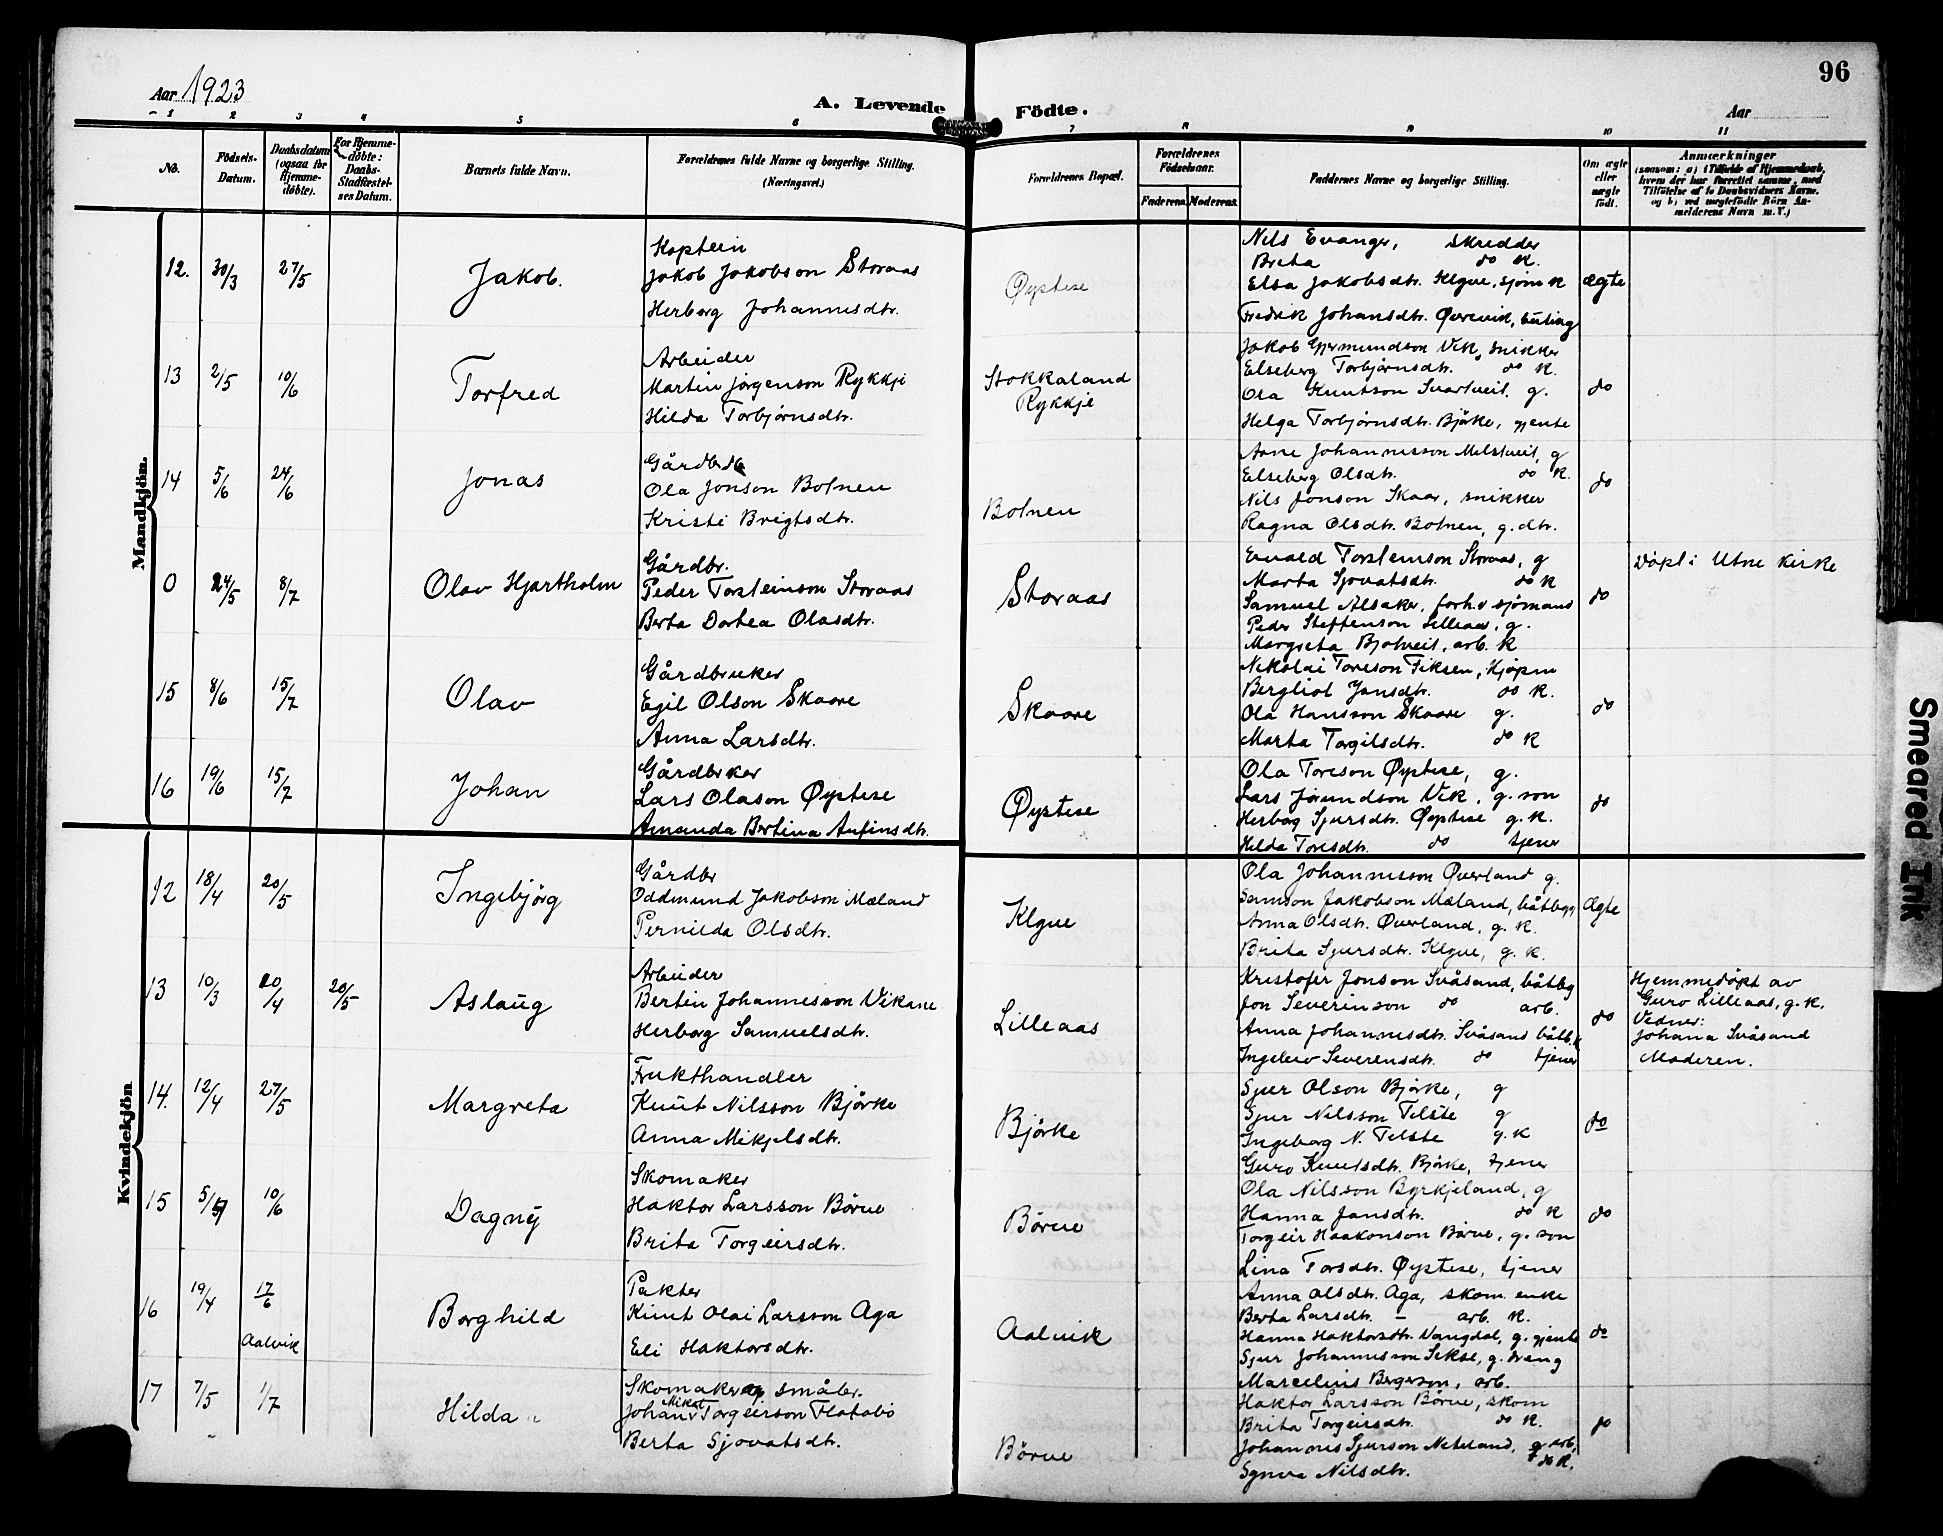 96
Aar 1923
A. Levende Födte.
Aar
1 2 3 4 5 6 7 8 9 10 11
No.
Födsels-Datum.
Daabsdatum (ogsaa for Hjemme-döbte).
For Hjemme-döbte: Daabs-Stadfæstel-ses Datum.
Barnets fulde Navn.
Forældrenes fulde Navne og borgerlige Stilling. (Næringsvei.)
Forældrenes Bopæl.
Forældrenes Födselsaar.
Faderens. Moderens.
Faddernes Navne og borgerlige Stilling.
Om ægte eller uægte födt.
Anmærkninger
(saasom: a) i Tilfælde af Hjemmedaab, hvem der har forrettet samme, med Tilföielse af to Daabsvidners Navne, og b) ved uægtefödte Börn An-melderens Navn m.V.)
Mandkjön.
12. 30/3 27/5 Jakob.
Kaptein
Jakob Jakobson Storaas
Herborg Johannesdtr.
Øystese
Nils Evanger, skredder
Brita do K.
Elsa Jakobsdtr. Klyve, sjøm K
Fredrik Johansdtr. Øvrevik,
Ægte
13 2/5 10/6 Torfred
Arbeider
Martin Jörgenson Rykkje
Hilda Torbjørnsdtr.
Stokkaland
Rykkje
Jakob Gjermundson Vik, snikker
Elseberg Torbjørnsdtr. do K.
Ola Knutson Svartveit, g.
Helga Torbjørnsdtr. Bjørke, gjente
do
14 5/6 24/6 Jonas
Gårdbr
Ola Jonson Botnen
Kristi Brigtsdtr.
Botnen
Arne Johannesson Melstveit, g
Elseberg Olsdtr. do K.
Nils Jonson Skaar, snikker
Ragna Olsdtr. Botnen, g.dtr.
do
0 24/5 8/7 Olav Hjartholm
Gårdbr.
Peder Torsteinson Storaas
Berta Dortea Olasdtr.
Storaas
Evald Torsteinson Storaas, g
Marta Sjovatsdtr. do K
Samuel Alsaker, forh.v sjømans
Peder Steffenson Lilleaas, g.
Margreta Bjotveit, arb. K
do
Døpt i Utne Kirke
15 8/6 15/7 Olav
Gårdbruker
Egil Olson Skaare
Anna Larsdtr.
Skaare
Nikolai Toreson Fiksen, Kjøpm
Bergliot Jonsdtr. do K.
Ola Hansson Skaare g.
Marta Torgilsdtr. do K
do
16 19/6 15/7 Johan
Gårdbrker
Lars Olason Øystese
Amanda Bertina Anfinsdtr.
Øystese
Ola Toreson Øystese, g.
Lars Jörundson Vik, g. son
Herborg Sjursdtr. Øystese g.K.
Hilda Toresdtr. do tjener
do
Kvindekjön
12 18/4 20/5 Ingebjörg
Gårdbr
Oddmund Jakobson Mæland
Pernilda Olsdtr.
Klyve
Ola Johannesson Øverland g.
Samson Jakobson Mæland, båtbygg
Anna Olsdtr. Øverland, g. K.
Brita Sjursdtr. Klyve, g. K.
Ægte
13 10/3 20/4 20/5 Aslaug
Arbeider
Bertin Johannesson Vikane
Herborg Samuelsdtr.
Lilleaas
Kristofer Jonson Svåsand, båtbyg
Jon Severinson do arb.
Anna Johannesdtr. Svåsand båtb.K
Ingelev Severensdtr. do tjener
do
Hjemmedøpt av
Guro Lilleaas, g.K.
Vidner:
Johana Svåsand
Moderen.
14. 12/4 27/5 Margreta
Frukthandler
Knut Nilsson Bjørke
Anna Mikjelsdtr.
Bjørke
Sjur Olson Bjørke, g
Sjur Nilsson Telste g
Ingeborg N. Telste g.K
Guro Knutsdtr. Bjørke, tjener
do
15 5/5 10/6 Dagny
Skomaker
Haktor Larsson Børve
Brita Torgeirsdtr.
Børve
Ola Nilsson Byrkjeland, g
Hanna Jonsdtr. do K
Torgeir Haakonson Børve, g. son
Lina Torsdtr. Øystese, tjener
do
16 19/4 17/6 Aalvik Borghild
Pakter
Knut Olai Larsson Aga
Eli Haktorsdtr.
Aalvik
Anna Olsdtr. Aga, skom. enke
Berta Larsdtr. – arb. K.
Hanna Haktorsdtr. Vangdal, g. gjente
Sjur Johannesson Sekse, g. dreng
Marcelius Bergerson, arb.
do
17 7/5 1/7 Hilda
Skomaker og småbr.
Johan Mikal Torgeirson Flatabø
Berta Sjovatsdtr.
Børve
Haktor Larsson Børve, skom
Brita Torgeirsdtr. do K.
Johannes Sjurson Neteland, g arb,
Synva Nilsdtr. do K.
do
Smeared Ink